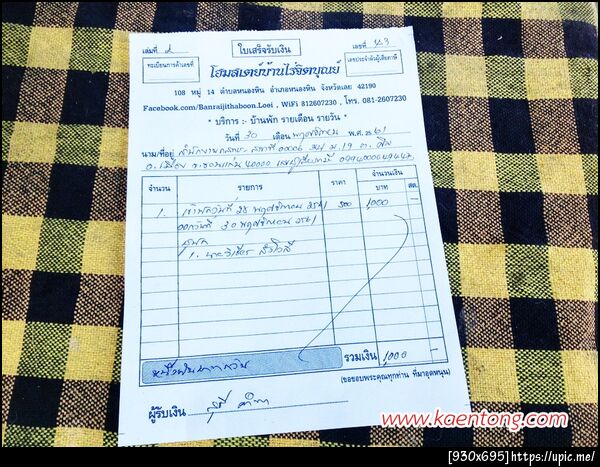 เล่มที่ 2 ใบเสร็จรับเงิน เลขที่
ทะเบียนการค้าเลขที่ เลขประจำตัวผู้เสียภาษี
โฮมสเตย์บ้านไร่จิตบุณย์
108 หมู่ 14 ตำบลหนองหิน อำเภอหนองหิน จังหวัดเลย 42190
Facebook.com/Banraijithaboon.Loei , WiFi 812607230 , โทร. 081-2607230
* บริการ :- บ้านพัก รายเดือน รายวัน *
วันที่ 30 เดือน พฤศจิกายน พ.ศ. 61
นาม/ที่อยู่ 00006 ม.19 ต.
อ.เมือง จ.ขอนแก่น 40000
จำนวน รายการ ราคา จำนวนเงิน
บาท สต.
1. เข้าพักวันที่ 28 พฤศจิกายน 2561 500 1000
ออกวันที่ 30 พฤศจิกายน 2561
ผู้พัก
1.
หนึ่งพันบาทถ้วน รวมเงิน 1000 -
(ขอขอบพระคุณทุกท่าน ที่มาอุดหนุน)
ผู้รับเงิน
www.kaentong.com
[930x695]https://upic.me/